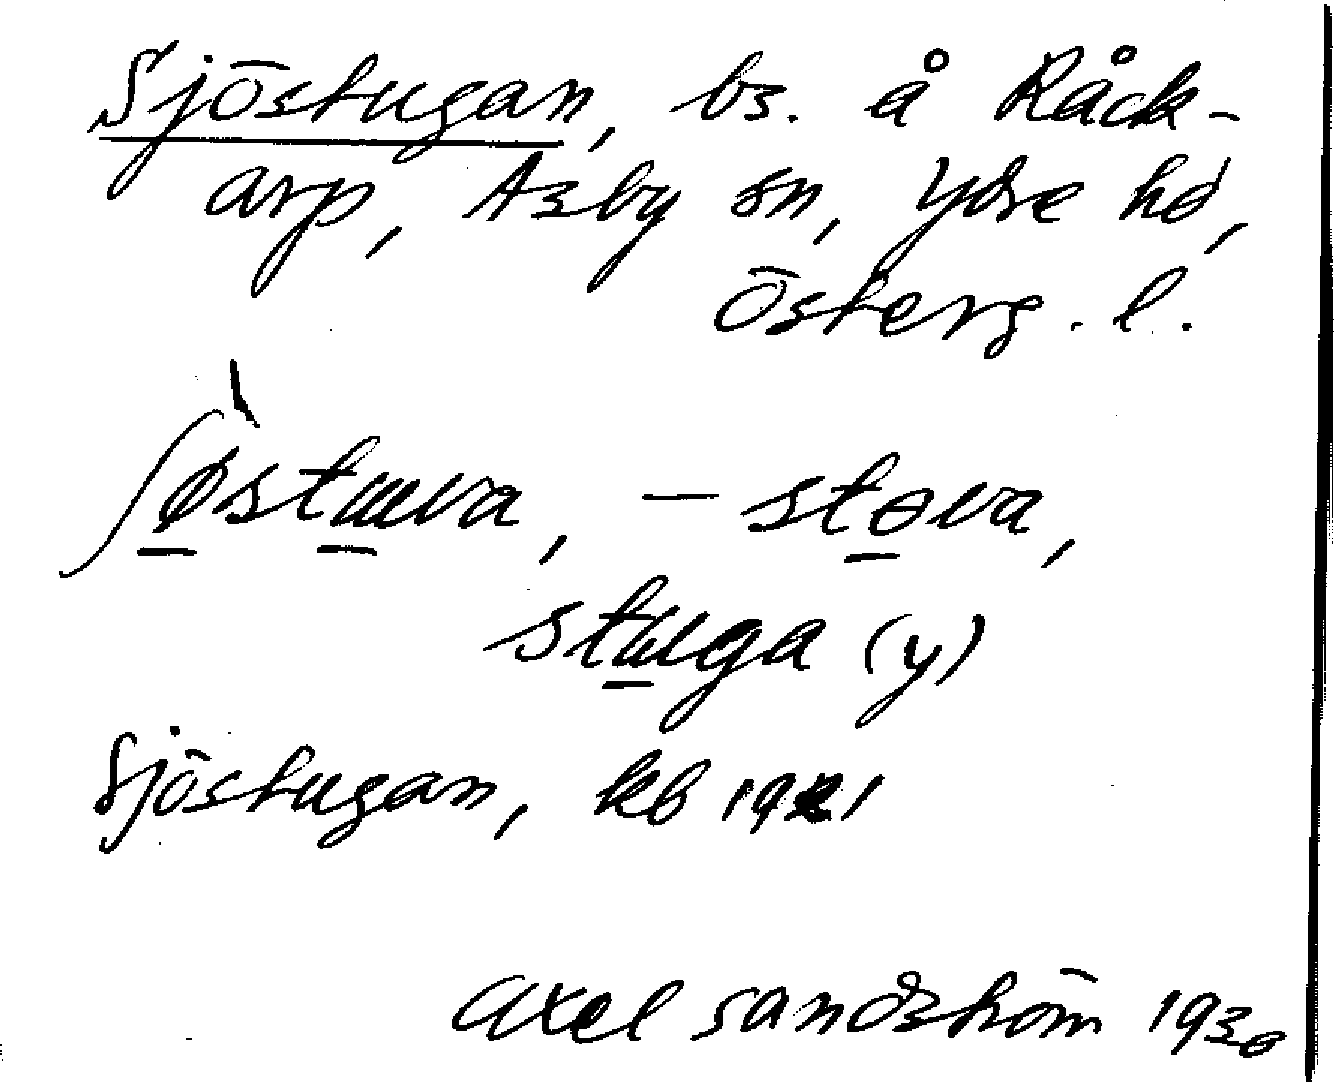 Sjöstugan, bs. å Råck-
arp, Asby sn, Ydre hd,
Österg. l.
ʃø̠̀stɯ̠va, – stɵ̠va,
stɯ̠ga (y)
Sjöstugan, kb 1921
Axel Sandström 1930